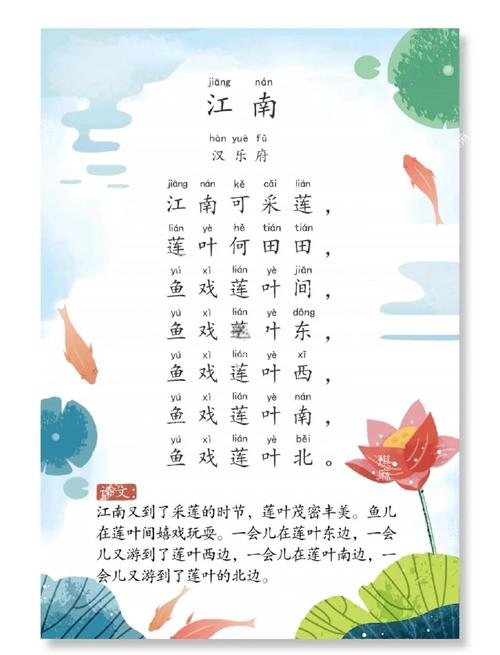 jiāng nán
江南
hàn yuè fǔ
汉乐府
jiāng nán kě cǎi lián
江南可采莲，
lián yè hě tián tián
莲叶何田田，
yú xì lián yè jiān
鱼戏莲叶间，
yú xì lián yè dōng
鱼戏叶东，
yú xì lián yè xī
鱼戏莲叶西，
yú xì lián yè nán
鱼戏莲叶南，
yú xì lián yè běi
鱼戏莲叶北。
译文：
江南又到了采莲的时节，莲叶茂密丰美。鱼儿
在莲叶间嬉戏玩耍。一会儿在莲叶东边，一会
儿又游到了莲叶西边，一会儿在莲叶南边，一
会儿又游到了莲叶的北边。